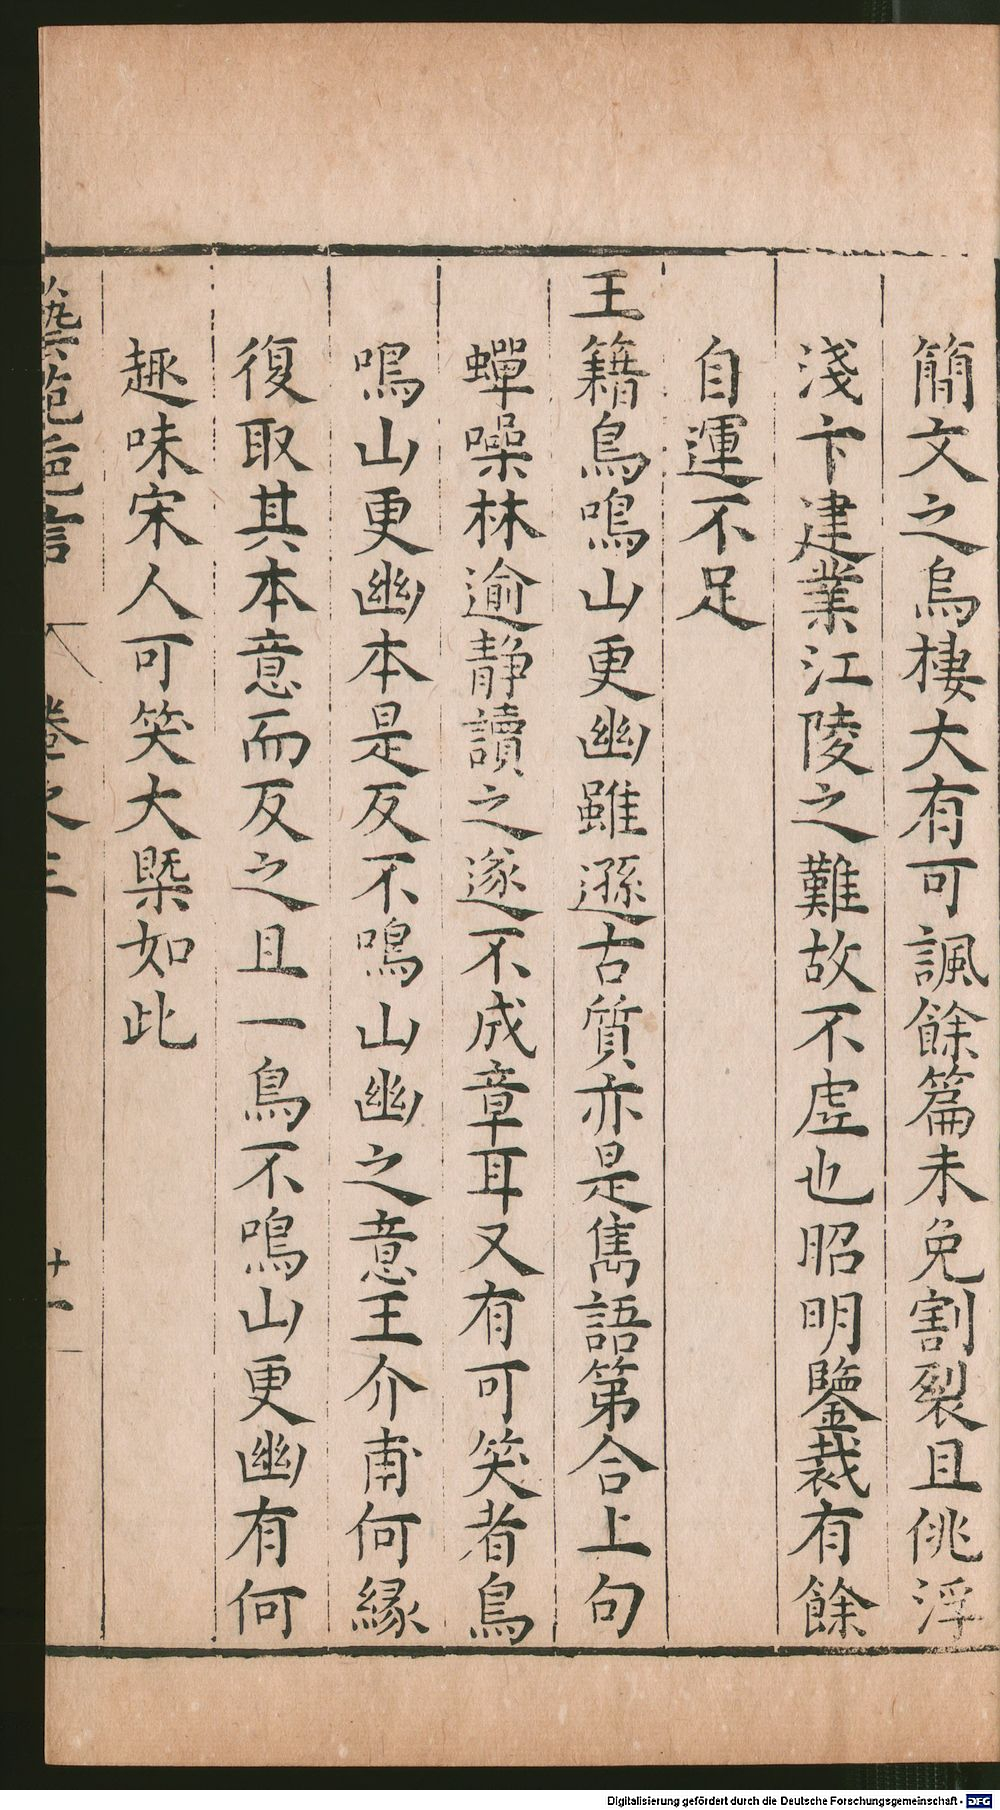 簡文之烏棲大有可諷餘篇未免割裂且佻浮
淺卞建業江陵之難故不虛也昭明鑒裁有餘
自運不足
王籍鳥鳴山更幽雖遜古質亦是雋語第合上句
蟬噪林逾静讀之遂不成章耳又有可笑者鳥
鳴山更幽本是反不鳴山幽之意王介甫何緣
復取其本意而反之且一鳥不鳴山更幽有何
趣味宋人可笑大槩如此
藝苑巵言 卷之三 十一
Digitalisierung gefördert durch die Deutsche Forschungsgemeinschaft - DFG